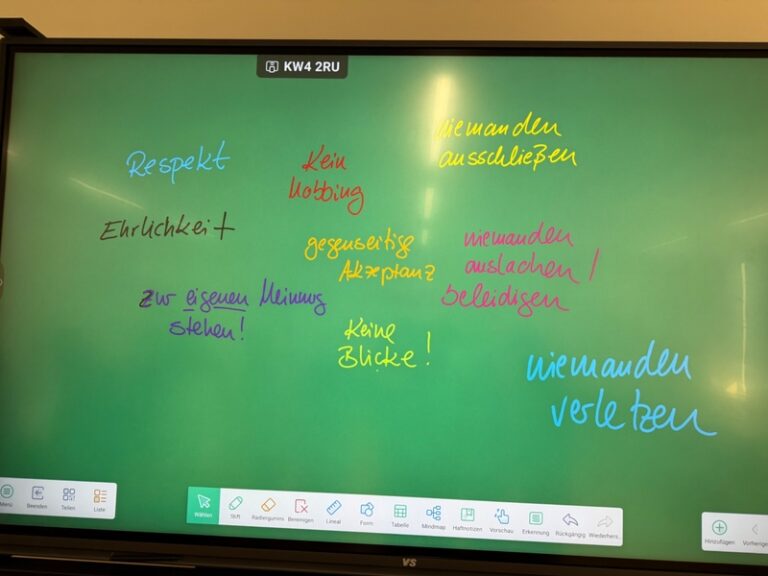 KW4 2RU
Respekt
Kein
Mobbing
niemanden
ausschließen
Ehrlichkeit
gegenseitige
Akzeptanz
niemanden
auslachen /
beleidigen
zur eigenen Meinung
stehen!
Keine
Blicke!
niemanden
verletzen
Menü
Beenden
Teilen
Liste
Wählen
Stift
Radiergummi
Bereinigen
Lineal
Form
Tabelle
Mindmap
Haftnotizen
Vorschau
Erkennung
Rückgängig
Wiederhers.
Hinzufügen
Vorherige
VS